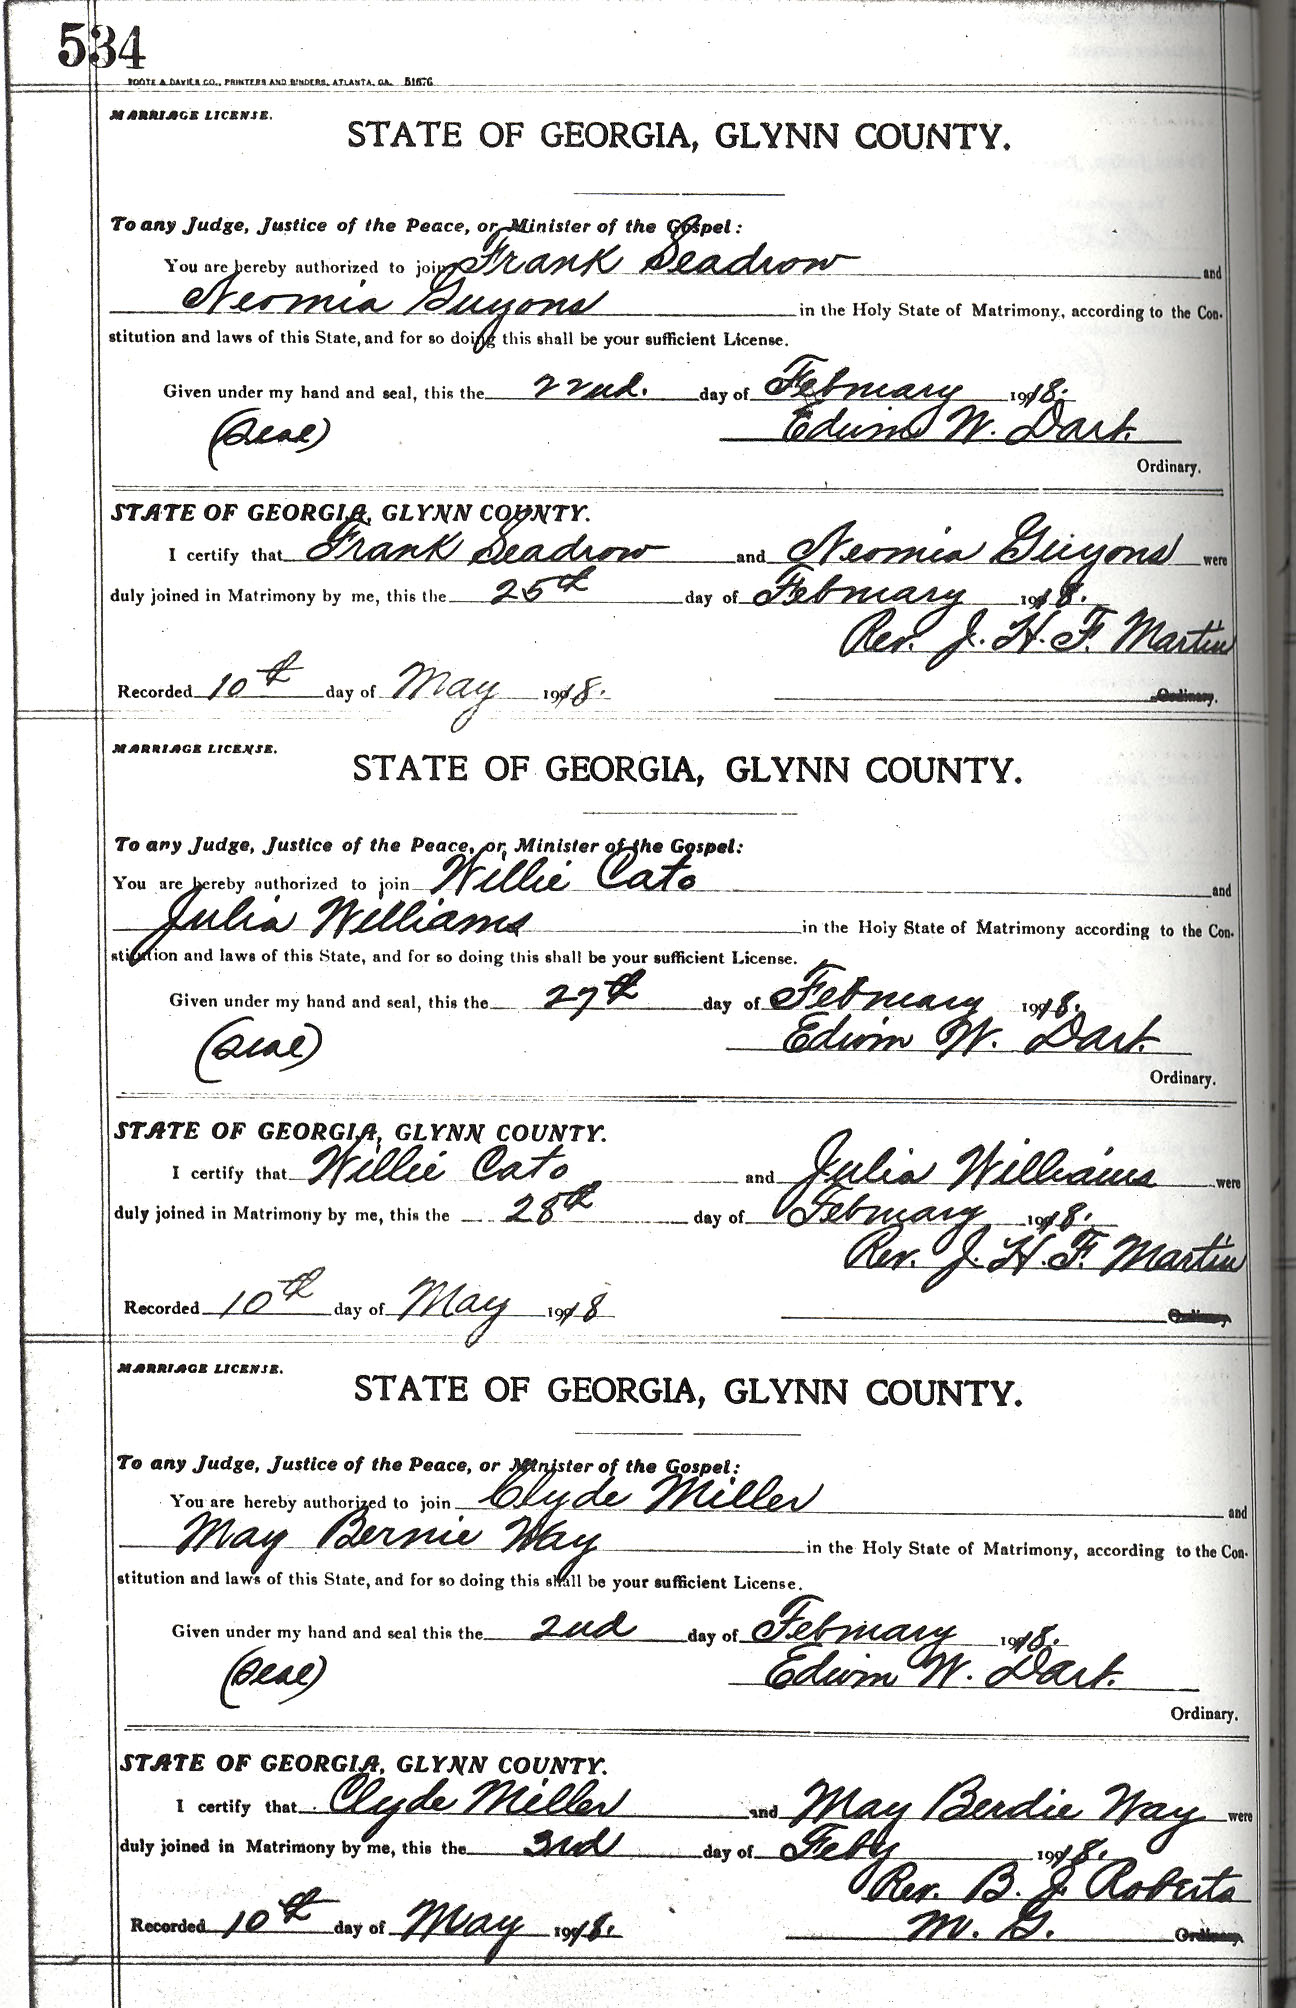 534
FOOTE & DAVIES CO., PRINTERS AND BINDERS, ATLANTA, GA. 51676
MARRIAGE LICENSE.
STATE OF GEORGIA, GLYNN COUNTY.
To any Judge, Justice of the Peace, or Minister of the Gospel:
You are hereby authorized to join Frank Seadrow and
Neomia Guyons in the Holy State of Matrimony, according to the Con-
stitution and laws of this State, and for so doing this shall be your sufficient License.
Given under my hand and seal, this the 22nd. day of February 1918.
(Seal) Edwin W. Dart.
Ordinary.
STATE OF GEORGIA, GLYNN COUNTY.
I certify that Frank Seadrow and Neomia Guyons were
duly joined in Matrimony by me, this the 25th day of February 1918.
Rev. J. H. F. Martin
Recorded 10th day of May 1918. Ordinary.
MARRIAGE LICENSE.
STATE OF GEORGIA, GLYNN COUNTY.
To any Judge, Justice of the Peace, or Minister of the Gospel:
You are hereby authorized to join Willie Cato and
Julia Williams in the Holy State of Matrimony according to the Con-
stitution and laws of this State, and for so doing this shall be your sufficient License.
Given under my hand and seal, this the 27th day of February 1918.
(Seal) Edwin W. Dart.
Ordinary.
STATE OF GEORGIA, GLYNN COUNTY.
I certify that Willie Cato and Julia Williams were
duly joined in Matrimony by me, this the 28th day of February 1918.
Rev. J. H. F. Martin
Recorded 10th day of May 1918 Ordinary.
MARRIAGE LICENSE.
STATE OF GEORGIA, GLYNN COUNTY.
To any Judge, Justice of the Peace, or Minister of the Gospel:
You are hereby authorized to join Clyde Miller and
May Bernie Way in the Holy State of Matrimony, according to the Con-
stitution and laws of this State, and for so doing this shall be your sufficient License.
Given under my hand and seal this the 2nd day of February 1918.
(Seal) Edwin W. Dart.
Ordinary.
STATE OF GEORGIA, GLYNN COUNTY.
I certify that Clyde Miller and May Berdie Way were
duly joined in Matrimony by me, this the 3rd day of Feby 1918.
Rev. B. J. Roberts
Recorded 10th day of May 1918. M. G. Ordinary.